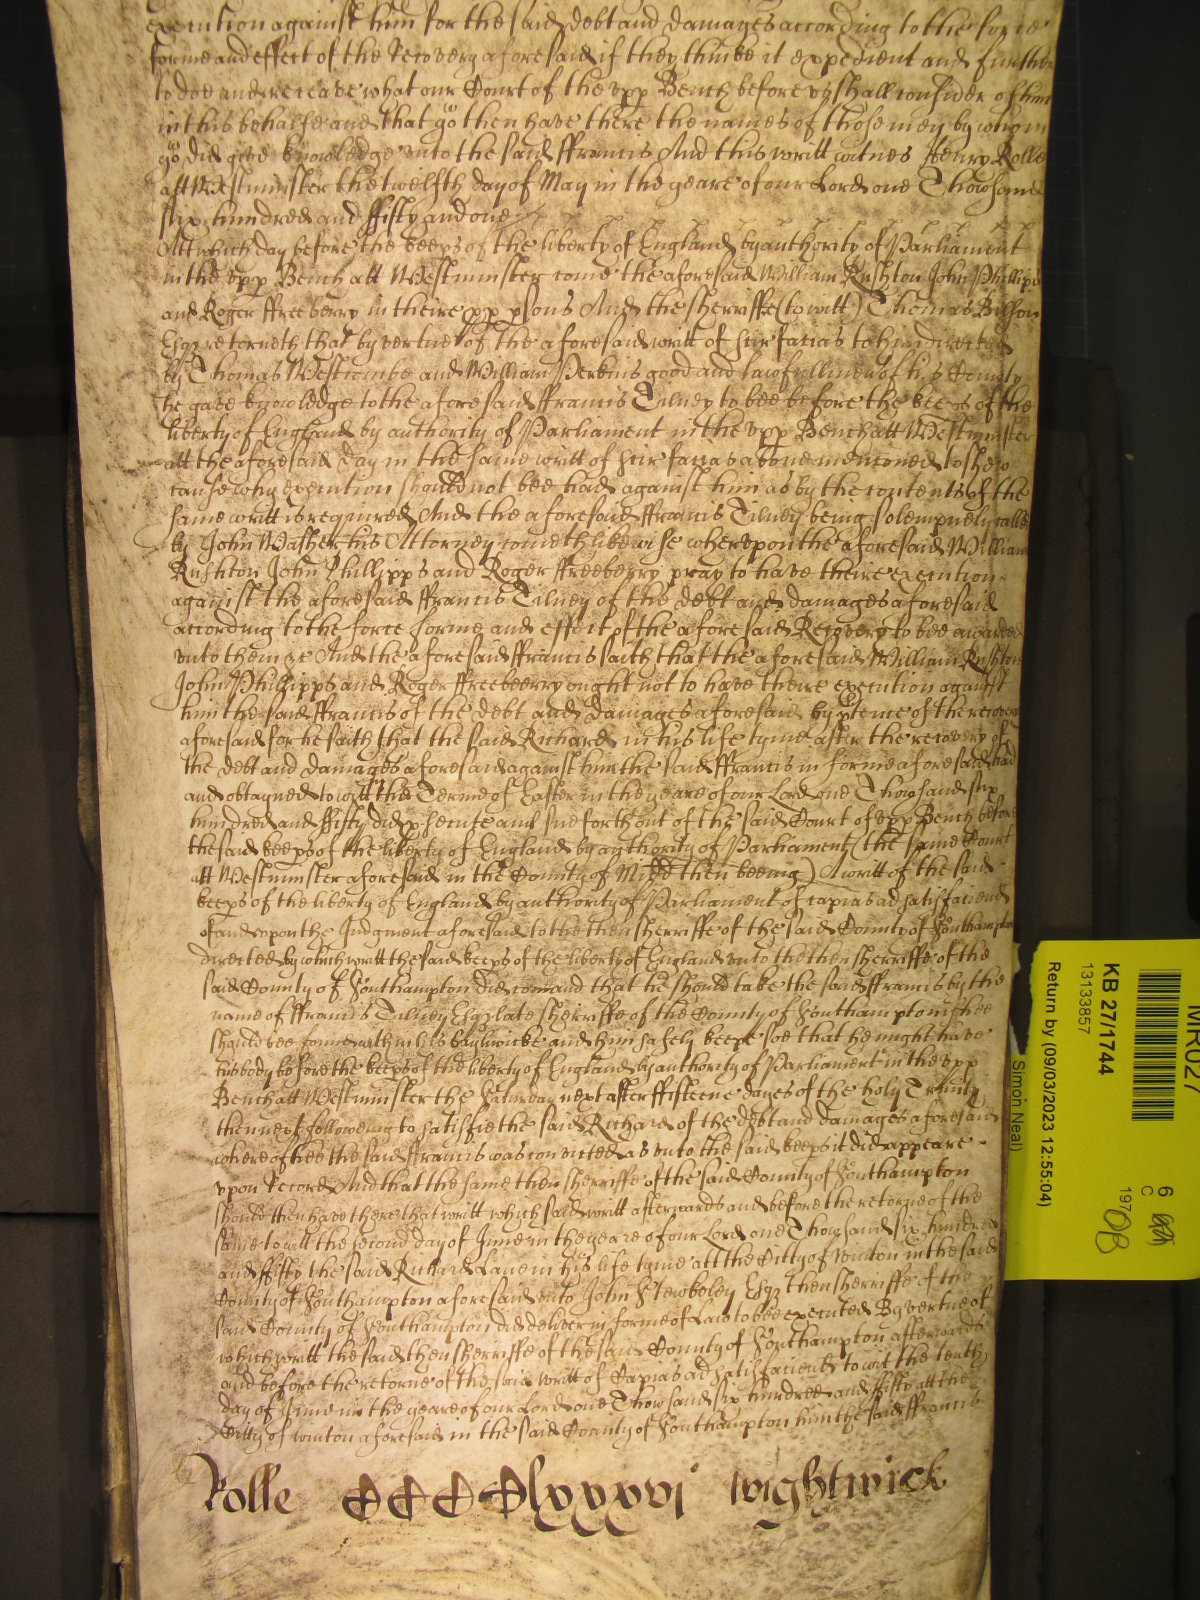 execution against him for the said debt and damages according to the force
forme and effect of the Recovery aforesaid if they thinke it expedient and further
to doe and receave what our Court of the vpp Bench before vs shall consider of him
in this behalfe and that yo then have there the names of those men by whom
yo did give knowledge vnto the said ffrancis And this writt witnes Henry Rolle
att Westminster the twelfth day of May in the yeare of our Lord one Thowsand
six hundred and ffifty and one
Att which day before the keeps of the liberty of England by authority of Parliament
in the vpp Bench att Westminster come the aforesaid William Rushton John Phillips
and Roger ffreeberry in theire pp psons And the sherriffe (to witt) Thomas Bilson
Esqr retorneth that by vertue of the aforesaid writt of scir facias to him directed
by Thomas Westcombe and William Perkins good and lawfull men of his County
he gave knowledge to the aforesaid ffrancis Tilney to bee before the keeps of the
liberty of England by authority of Parliament in the vpp Bench att Westminster
att the aforesaid day in the same writt of scir facias above mencioned to shew
cause why execution should not bee had against him as by the contents of the
same writt is required And the aforesaid ffrancis Tilney being solempnely called
by John Washer his Attorney cometh likewise wherevpon the aforesaid William
Rushton John Phillipps and Roger ffreeberry pray to have theire execution
against the aforesaid ffrancis Tilney of the debt and damages aforesaid
according to the force forme and effect of the aforesaid Recovery to bee awarded
vnto them &c And the aforesaid ffrancis saith that the aforesaid William Rushton
John Phillipps and Roger ffreeberry ought not to have theire execution against
him the said ffrancis of the debt and damages aforesaid by ptence of the recovery
aforesaid for he saith that the said Richard in his life tyme after the recovery of
the debt and damages aforesaid against him the said ffrancis in forme aforesaid had
and obtayned to witt the Terme of Easter in the yeare of our Lord one Thowsand six
hundred and ffifty did psecute and sue forth out of the said Court of vpp Bench before
the said keeps of the liberty of England by authority of Parliament (the same Court
att Westminster aforesaid in the County of Midd then beeing) A writt of the said
keeps of the liberty of England by authority of Parliament of capias ad satisfaciend
of and vpon the Judgment aforesaid to the then sherriffe of the said County of Southampton
directed by which writt the said keeps of the liberty of England vnto the then sherriffe of the
said County of Southampton did comand that he should take the said ffrancis by the
name of ffrancis Tilney Esqr late sherriffe of the County of Southampton if hee
should bee founde within his baylywicke and him safely keepe soe that he might have
his body before the keeps of the liberty of England by authority of Parliament in the vpp
Bench att Westminster the Saturday next after ffifteene dayes of the holy Trinity
then next following to satisfie the said Richard of the debt and damages aforesaid
whereof hee the said ffrancis was convicted as vnto the said keeps it did appeare
vpon Record And that the same then sherriffe of the said County of Southampton
should then have there that writt which said writt afterwards and before the retorne of the
same to witt the second day of June in the yeare of our Lord one Thowsand six hundred
and ffifty the said Richard Lane in his life tyme att the Citty of Winton in the said
County of Southampton aforesaid vnto John Stewkeley Esqr then sherriffe of the
said County of Southampton did deliver in forme of Law to bee executed By vertue of
which writt the said then sherriffe of the said County of Southampton afterwards
and before the retorne of the said writt of Capias ad satisfaciend to wit the tenth
day of June in the yeare of our Lord one Thowsand six hundred and ffifty att the
Citty of Winton aforesaid in the said County of Southampton him the said ffrancis
Rolle CCCClxxxxvj Wightwick
MR027
KB 27/1744
13133857
Return by (09/03/2023 12:55:04)
Simon Neal)
6
C
197